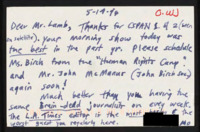 5-19-94
Dear Mr. Lamb, Thanks for CSPAN 1 & 2 (seen
on satellite). Your morning show today was
the best in the past yr. Please schedule
Ms. Birch from the "Human Rights Camp"
and Mr. John McManus (John Birch Soc)
again soon!
Much better than you having the
same brain-dead journalists on every week.
The L.A. Times editor is the most
worst guest you regularly have.